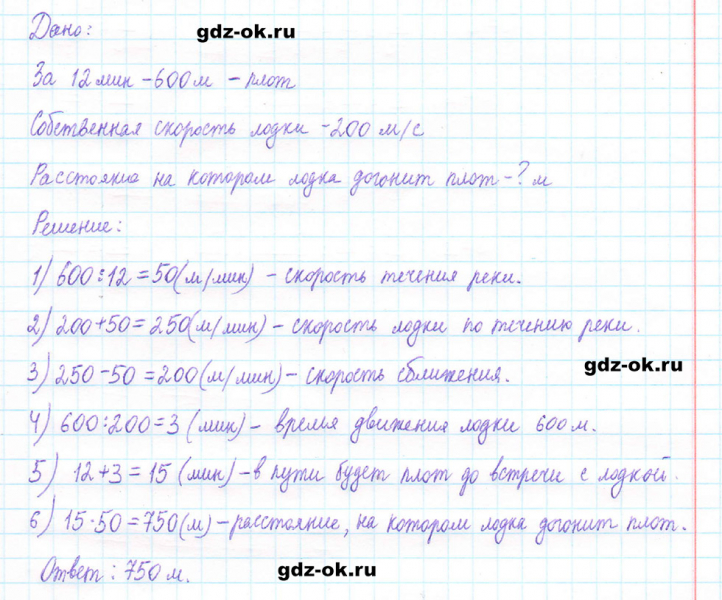 Дано: gdz-ok.ru
За 12 мин - 600 м - плот
Собственная скорость лодки - 200 м/с
Расстояние на котором лодка догонит плот - ? м
Решение:
1) 600 : 12 = 50 (м/мин) - скорость течения реки.
2) 200 + 50 = 250 (м/мин) - скорость лодки по течению реки.
gdz-ok.ru
3) 250 - 50 = 200 (м/мин) - скорость сближения.
4) 600 : 200 = 3 (мин) - время движения лодки 600 м.
5) 12 + 3 = 15 (мин) - в пути будет плот до встречи с лодкой.
6) 15 · 50 = 750 (м) - расстояние, на котором лодка догонит плот.
Ответ: 750 м. gdz-ok.ru